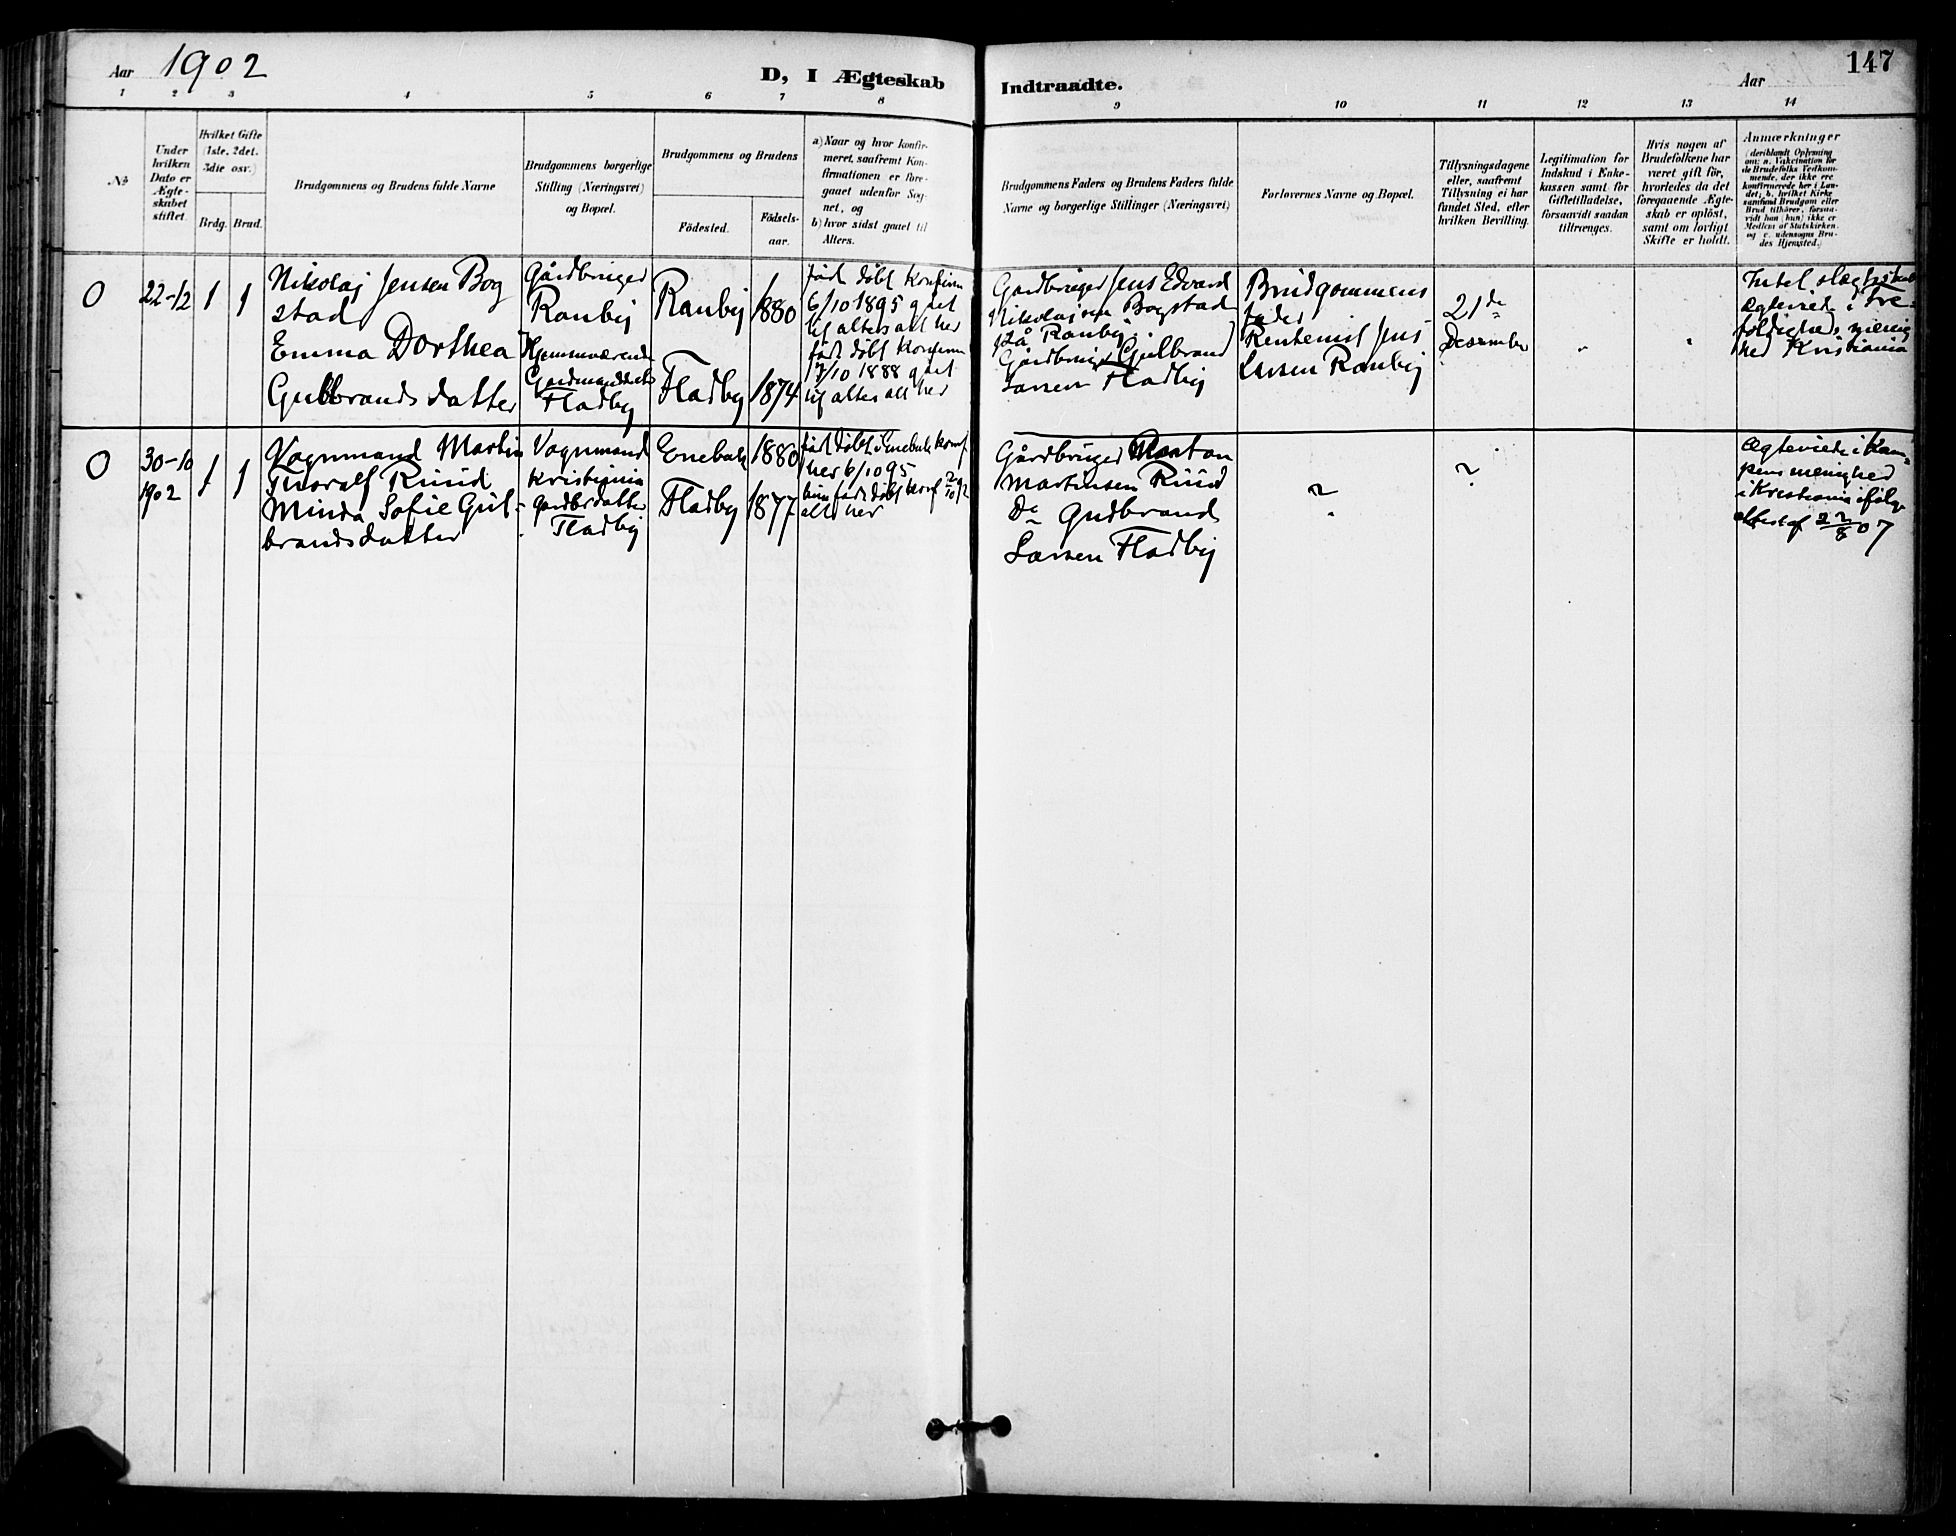 Aar 1902
D, I Ægteskab
Indtraadte.
Aar
147
1 2 3 4 5 6 7 8 9 10 11 12 13 14
№
Under
hvilken
Dato er
Ægte-
skabet
stiftet.
Hvilket Gifte
(1ste, 2det,
3die osv.)
Brdg. Brud.
Brudgommens og Brudens fulde Navne
Brudgommens borgerlige
Stilling (Næringsvei)
og Bopæl.
Brudgommens og Brudens
Fødested.
Fødsels-
aar.
a) Naar og hvor konfir-
meret, saafremt Kon-
firmationen er fore-
gaaet udenfor Sog-
net, og
b) hvor sidst gaaet til
Alters.
Brudgommens Faders og Brudens Faders fulde
Navne og borgerlige Stillinger (Næringsvei)
Forlovernes Navne og Bopæl.
Tillysningsdagene
eller, saafremt
Tillysning ei har
fundet Sted, efter
hvilken Bevilling.
Legitimation for
Indskud i Enke-
kassen samt for
Giftetilladelse,
forsaavidt saadan
tiltrænges.
Hvis nogen af
Brudefolkene har
været gift før,
hvorledes da det
foregaaende Ægte-
skab er opløst,
samt om lovligt
Skifte er holdt.
Anmærkninger
(deriblandt Oplysning
om: a. Vakcination for
de Brudefolks Vedkom-
mende, der ikke ere
konfirmerede her i Lan-
det; b. hvilket Kirke-
samfund Brudgom eller
Brud tilhører, forsaa-
vidt han (hun) ikke er
Medlem af Statskirken.
og c. udensogns Bru-
des Hjemsted.
0
22-12
1 1
Nikolaj Jensen Bog
stad
Emma Dorthea
Gulbrandsdatter
Gårdbruger
Ranbij
Hjemmeværende
Gardmandsdatter
Fladbij
Ranbij
Fladbij
1880
1874
født døbt konfirm
6/10 1895 gået
til alters alt her
født døbt konfirm
7/10 1888 gået
til alters alt her
Gardbruger Jens Edvard
Nikolajsen Bogstad
på Ranbij.
Gårdbruger Gulbrand
Larsen Fladbij
Brudgommens
fader
Rentenist Jens
Larsen Ranbij
21de
Desember
Intet slægtskab
Ægteviede i Tre-
foldigheds menig
hed Kristiania
0
30-10
1902
1 1
Vognmand Martin
Thoralf Ruud
Minda Sofie Gul-
brandsdatter
Vognmand
Kristiania
gardbrdatter
Fladbij
Enebak
Fladbij
1880
1877
født døbt i Enebak konf
her 6/10 95
hun født døbt konf 2/10 92
alt her
Gårdbruger Morton
Martinsen Ruud
Do Gudbrand
Larsen Fladbij
?
?
Ægteviede i Kam-
pens menighed
i Kristiania ifølge
attest af 22/8 07